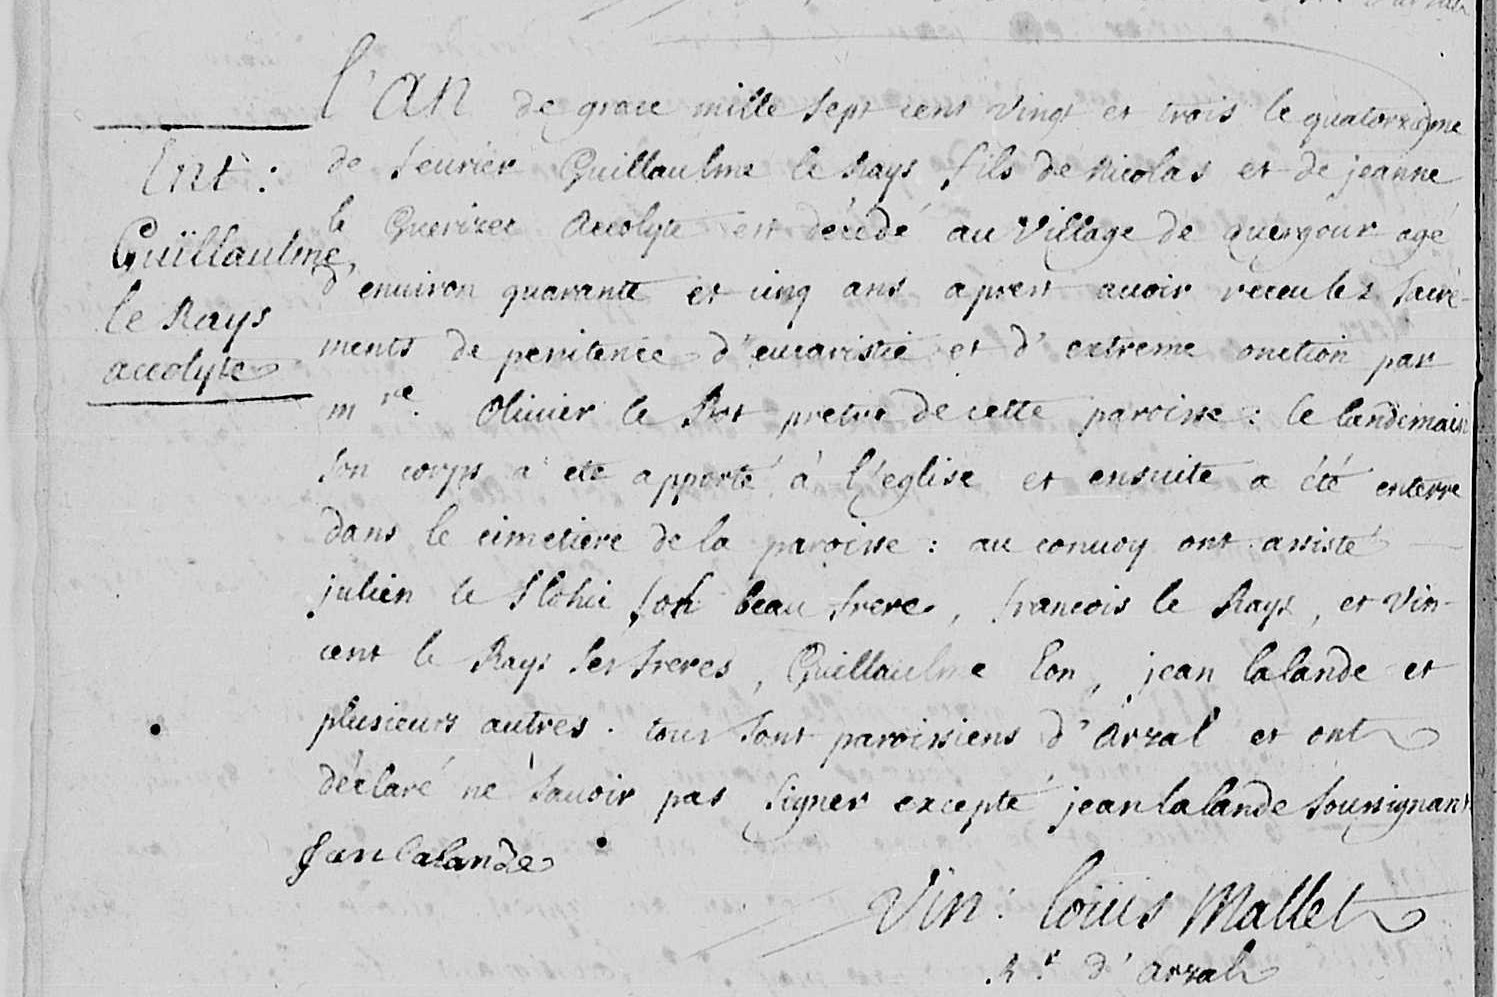 Ent :
Guillaulme
le Rays
accolyte
l'an de grace mille sept cent vingt et trois le quatorzieme
de feurier Guillaulme le Rays fils de Nicolas et de jeanne
le Guerizec Accolyte est décédé au Village de quergour agé
d'enuiron quarante et cinq ans aprest auoir receu les sacre-
ments de penitence d'eucaristie et d'extreme onction par
mre. Oliuier le pretre de cette paroisse : le landemain
son corps a eté apporté à l'eglise et ensuite a été enterre
dans le cimetiere de la paroisse : au conuoy ont assisté
julien le son beau frere, francois le Rays, et Vin-
cent le Rays ses freres, Guillaulme Eon, jean lalande et
plusieurs autres. tous sont paroissiens d'Arzal et ont
déclaré ne sauoir pas signer excepté jean lalande soussignant
Jan lalande
Vin : Loüis Mallet
Rr d'arzal